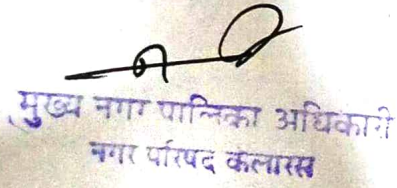 मुख्य नगर पालिका अधिकारी
नगर परिषद कोलारस